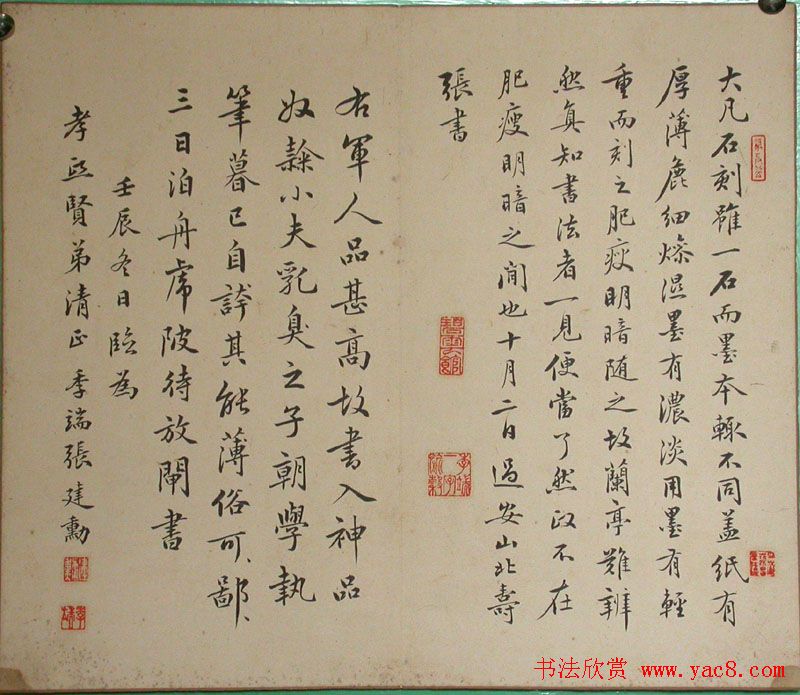 大凡石刻雖一石而墨本輙不同盖紙有
厚薄麄細燥濕墨有濃淡用墨有輕
重而刻之肥瘦明暗随之故蘭亭難辨
然真知書法者一見便當了然政不在
肥瘦明暗之間也十月二日過安山北壽
張書
右軍人品甚高故書入神品
奴隸小夫乳臭之子朝學執
筆暮已自誇其能薄俗可鄙
三日泊舟虎陂待放閘書
壬辰冬日臨為
孝
賢弟清正季端張建勳
书法欣赏 www.yac8.com